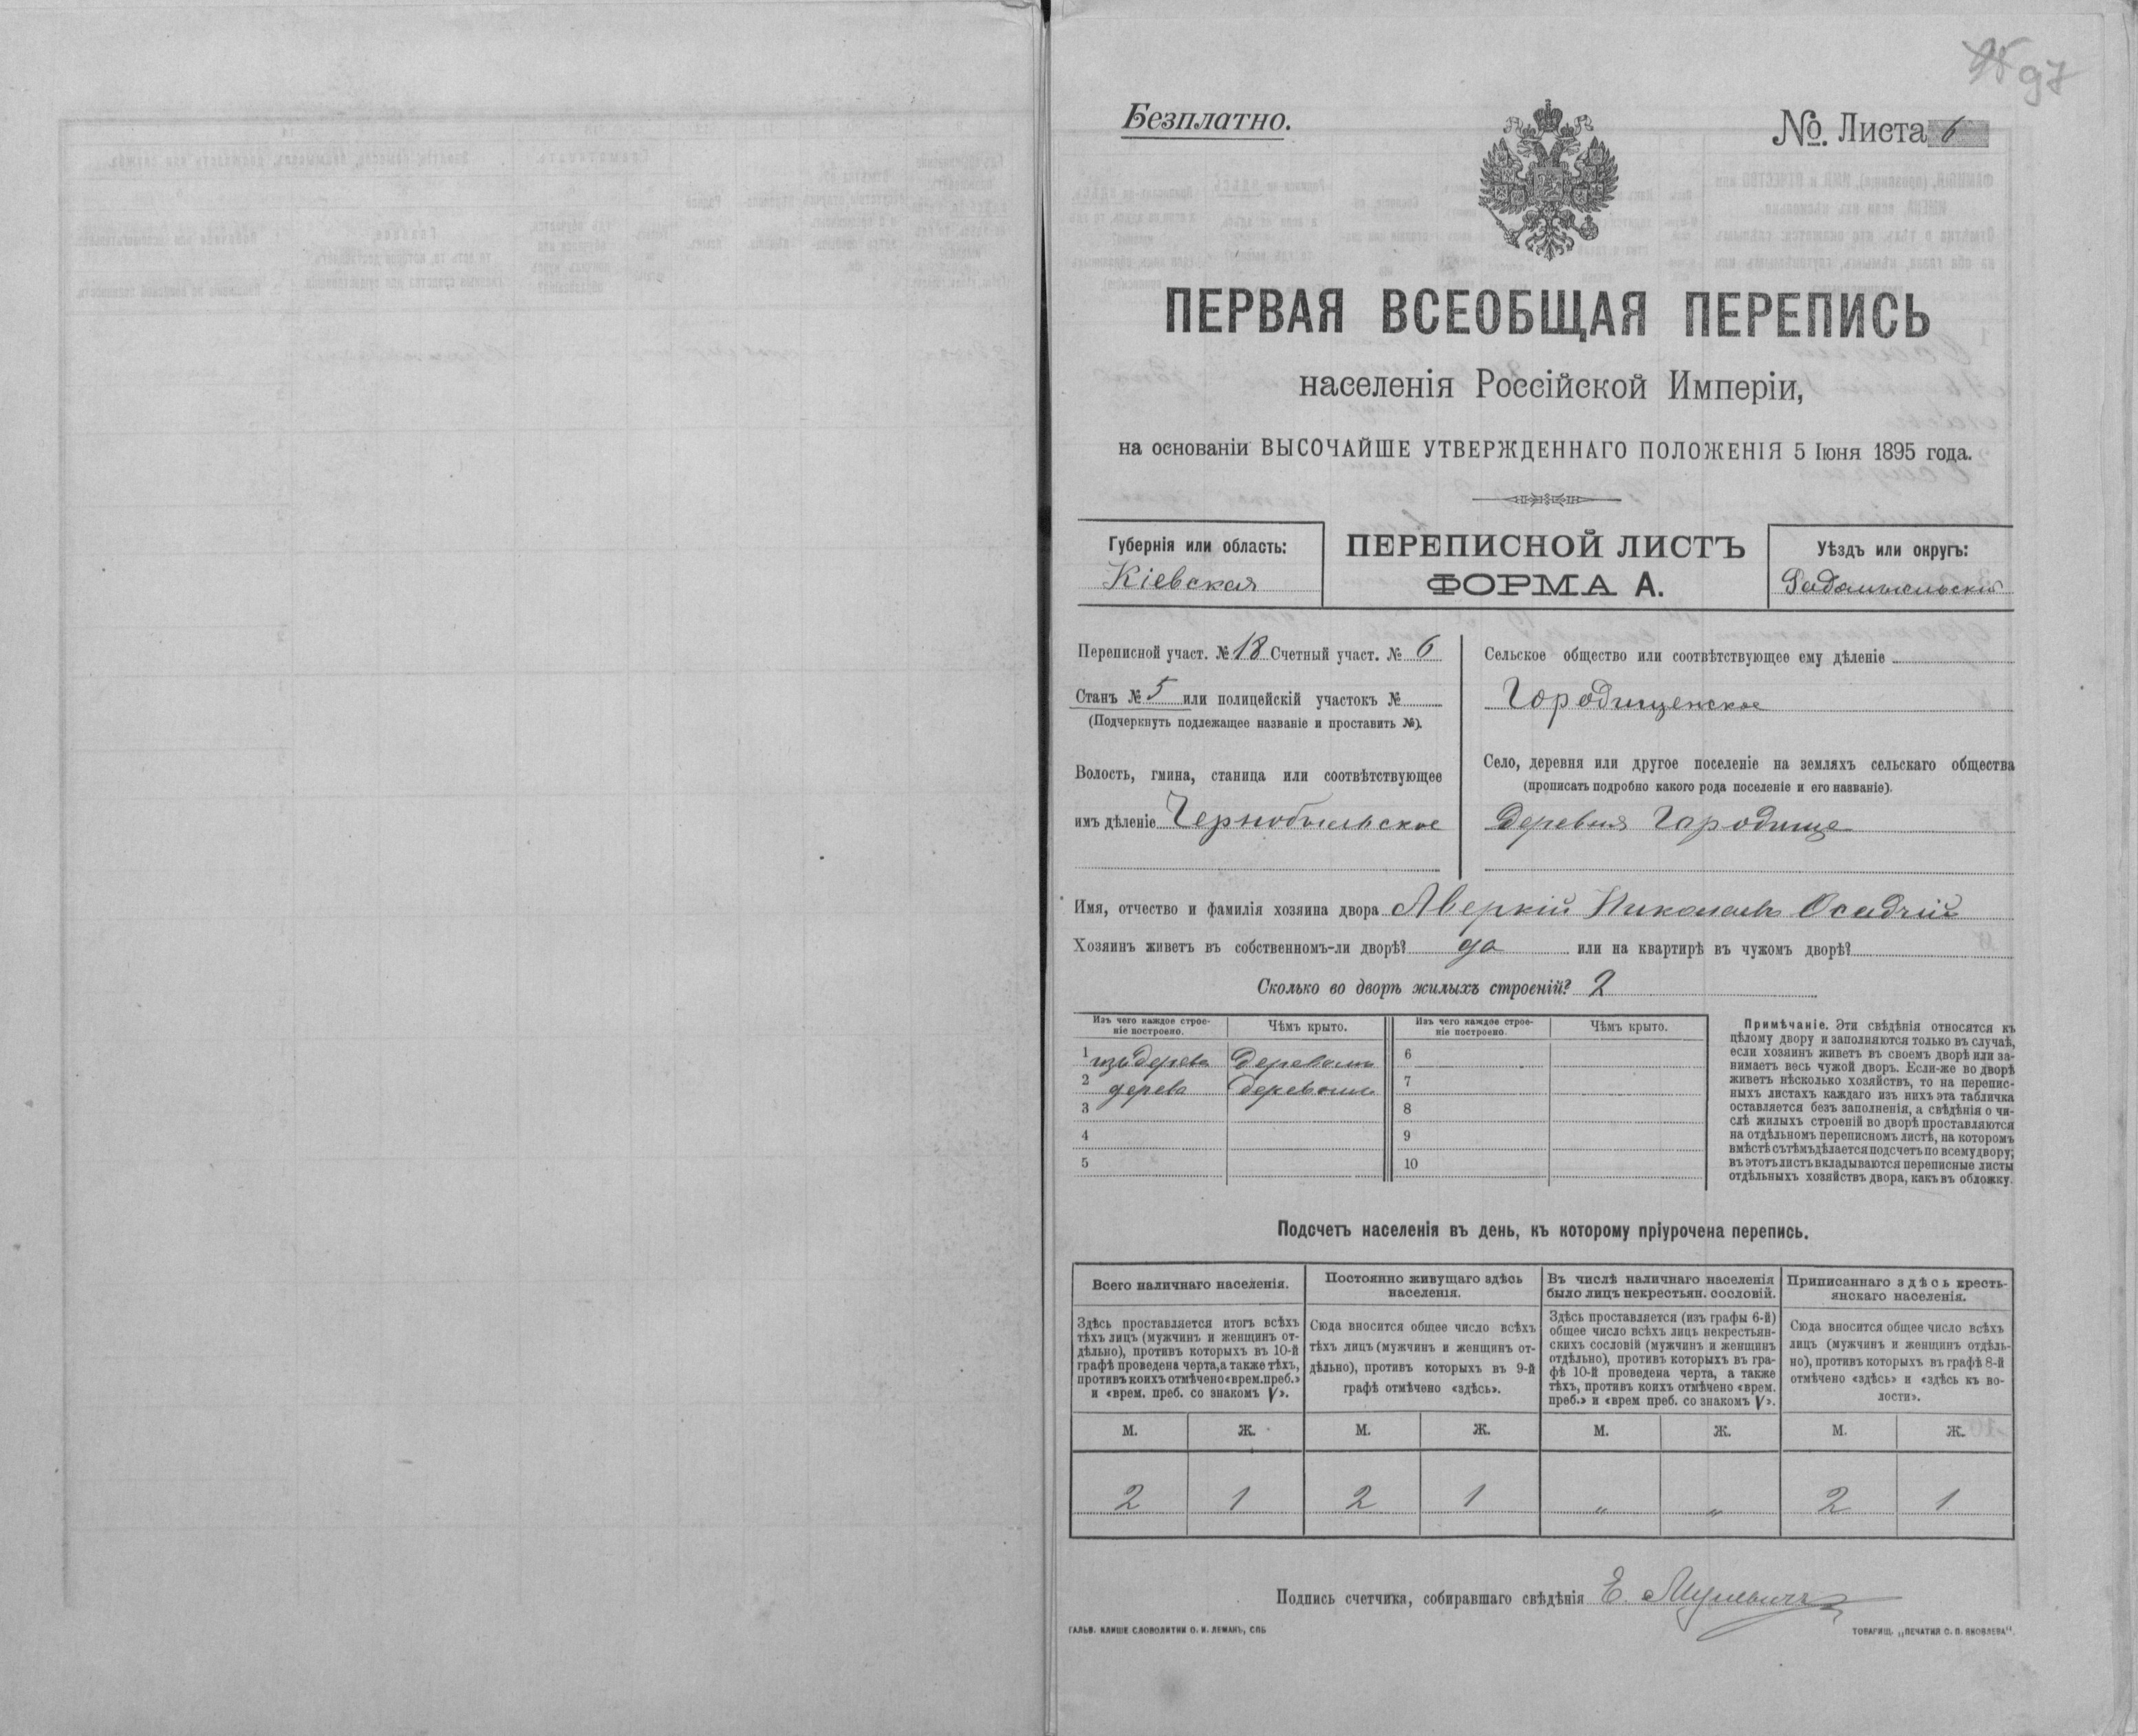 97
Безплатно.
№. Листа 6
ПЕРВАЯ ВСЕОБЩАЯ ПЕРЕПИСЬ
населенія Россійской Имперіи,
на основаніи ВЫСОЧАЙШЕ УТВЕРЖДЕННАГО ПОЛОЖЕНІЯ 5 Іюня 1895 года.
Губернія или область:
Кіевская
ПЕРЕПИСНОЙ ЛИСТЪ
ФОРМА А.
Уѣздъ или округъ:
Радомысльскій
Переписной участ. № 18 Счетный участ. № 6
Станъ № 5 или полицейскій участокъ №
(Подчеркнуть подлежащее названіе и проставить №).
Волость, гмина, станица или соотвѣтствующее
имъ дѣленіе Чернобыльское
Сельское общество или соотвѣтствующее ему дѣленіе
Городищенское
Село, деревня или другое поселеніе на земляхъ сельскаго общества
(прописать подробно какого рода поселеніе и его названіе).
деревня Городище
Имя, отчество и фамилія хозяина двора Аверкій Николаевъ Осадчій
Хозяинъ живетъ въ собственномъ-ли дворѣ? да или на квартирѣ въ чужомъ дворѣ?
Сколько во дворѣ жилыхъ строеній? 2
Изъ чего каждое строе-
ніе построено.
Чѣмъ крыто.
Изъ чего каждое строе-
ніе построено.
Чѣмъ крыто.
1 изъ дерева деревомъ 6
2 дерева деревомъ 7
3 8
4 9
5 10
Примѣчаніе. Эти свѣдѣнія относятся къ
цѣлому двору и заполняются только въ случаѣ,
если хозяинъ живетъ въ своемъ дворѣ или за-
нимаетъ весь чужой дворъ. Если-же во дворѣ
живетъ нѣсколько хозяйствъ, то на перепис-
ныхъ листахъ каждаго изъ нихъ эта табличка
оставляется безъ заполненія, а свѣдѣнія о чи-
слѣ жилыхъ строеній во дворѣ проставляются
на отдѣльномъ переписномъ листѣ, на которомъ
вмѣстѣ съ тѣмъ дѣлается подсчетъ по всему двору;
въ этотъ листъ вкладываются переписные листы
отдѣльныхъ хозяйствъ двора, какъ въ обложку.
Подсчетъ населенія въ день, къ которому пріурочена перепись.
Всего наличнаго населенія.
Здѣсь проставляется итогъ всѣхъ
тѣхъ лицъ (мужчинъ и женщинъ от-
дѣльно), противъ которыхъ въ 10-й
графѣ проведена черта, а также тѣхъ,
противъ коихъ отмѣчено «врем. преб.»
и «врем. преб. со знакомъ V».
Постоянно живущаго здѣсь
населенія.
Сюда вносится общее число всѣхъ
тѣхъ лицъ (мужчинъ и женщинъ от-
дѣльно), противъ которыхъ въ 9-й
графѣ отмѣчено «здѣсь».
Въ числѣ наличнаго населенія
было лицъ некрестьян. сословій.
Здѣсь проставляется (изъ графы 6-й)
общее число всѣхъ лицъ некрестьян-
скихъ сословій (мужчинъ и женщинъ
отдѣльно), противъ которыхъ въ гра-
фѣ 10-й проведена черта, а также
тѣхъ, противъ коихъ отмѣчено «врем.
преб.» и «врем преб. со знакомъ V».
Приписаннаго здѣсь кресть-
янскаго населенія.
Сюда вносится общее число всѣхъ
лицъ (мужчинъ и женщинъ отдѣль-
но), противъ которыхъ въ графѣ 8-й
отмѣчено «здѣсь» и «здѣсь къ во-
лости».
М. Ж. М. Ж. М. Ж. М. Ж.
2 1 2 1 „ „ 2 1
Подпись счетчика, собиравшаго свѣдѣнія Е.
ГАЛЬВ. КЛИШЕ СЛОВОЛИТНИ О. И. ЛЕМАНЪ, СПБ
ТОВАРИЩ. „ПЕЧАТНЯ С. П. ЯКОВЛЕВА".